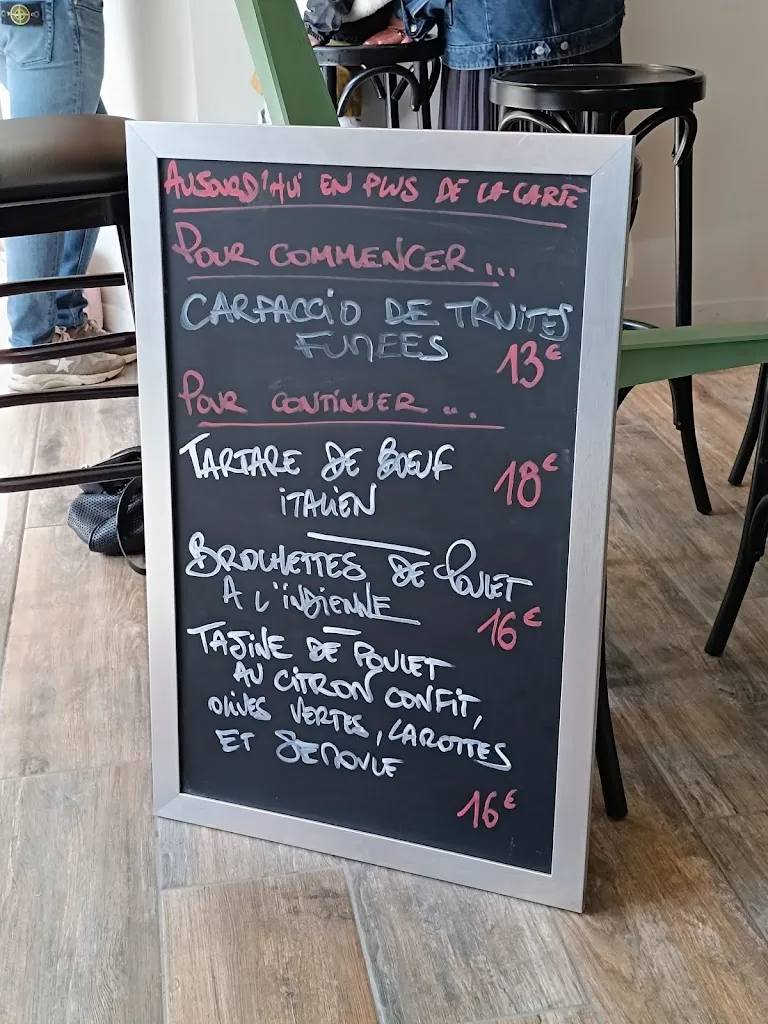 AUJOURD'HUI EN PLUS DE LA CARTE
POUR COMMENCER...
CARPACCIO DE TRUITES
FUMEES
13€
POUR CONTINUER...
TARTARE DE BOEUF
ITALIEN
18€
BROCHETTES DE POULET
A L'INDIENNE
16€
TAJINE DE POULET
AU CITRON CONFIT,
OLIVES VERTES, CAROTTES
ET SEMOULE
16€